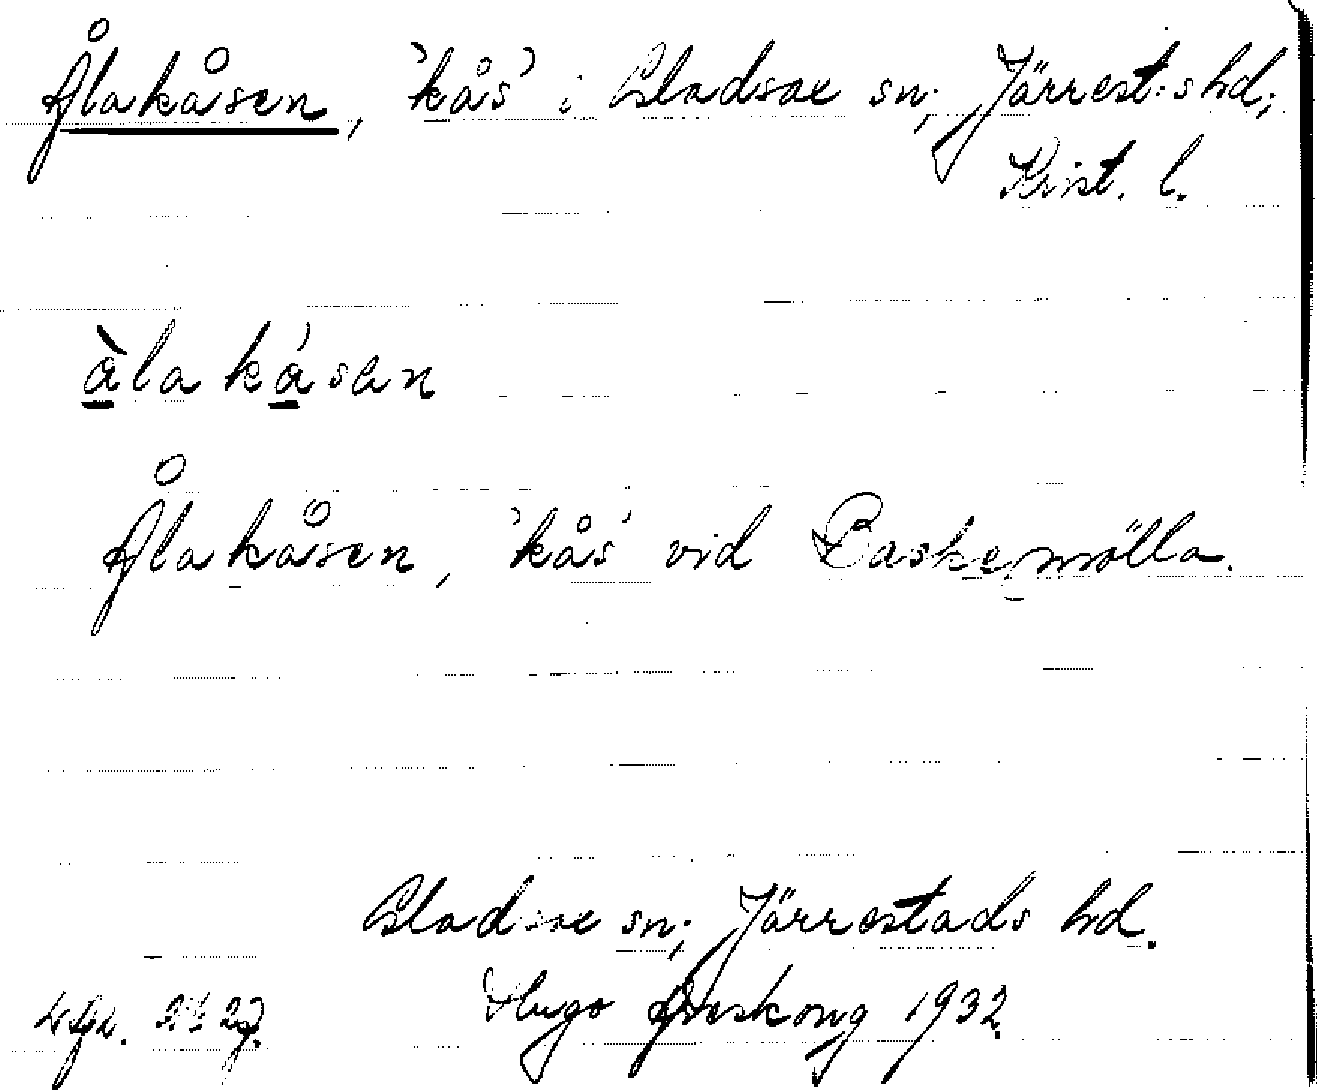 Ålakåsen, 'kås' i Gladsax sn; Järrest:s hd;
Krist. l.
àla kásan
Ålakåsen, 'kås' vid Baskemölla.
Gladsax sn; Järrestads hd.
Hugo Areskoug 1932.